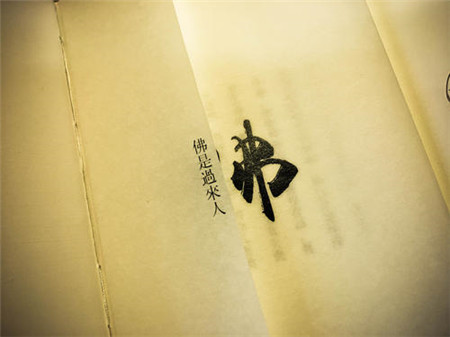 佛
佛是過來人